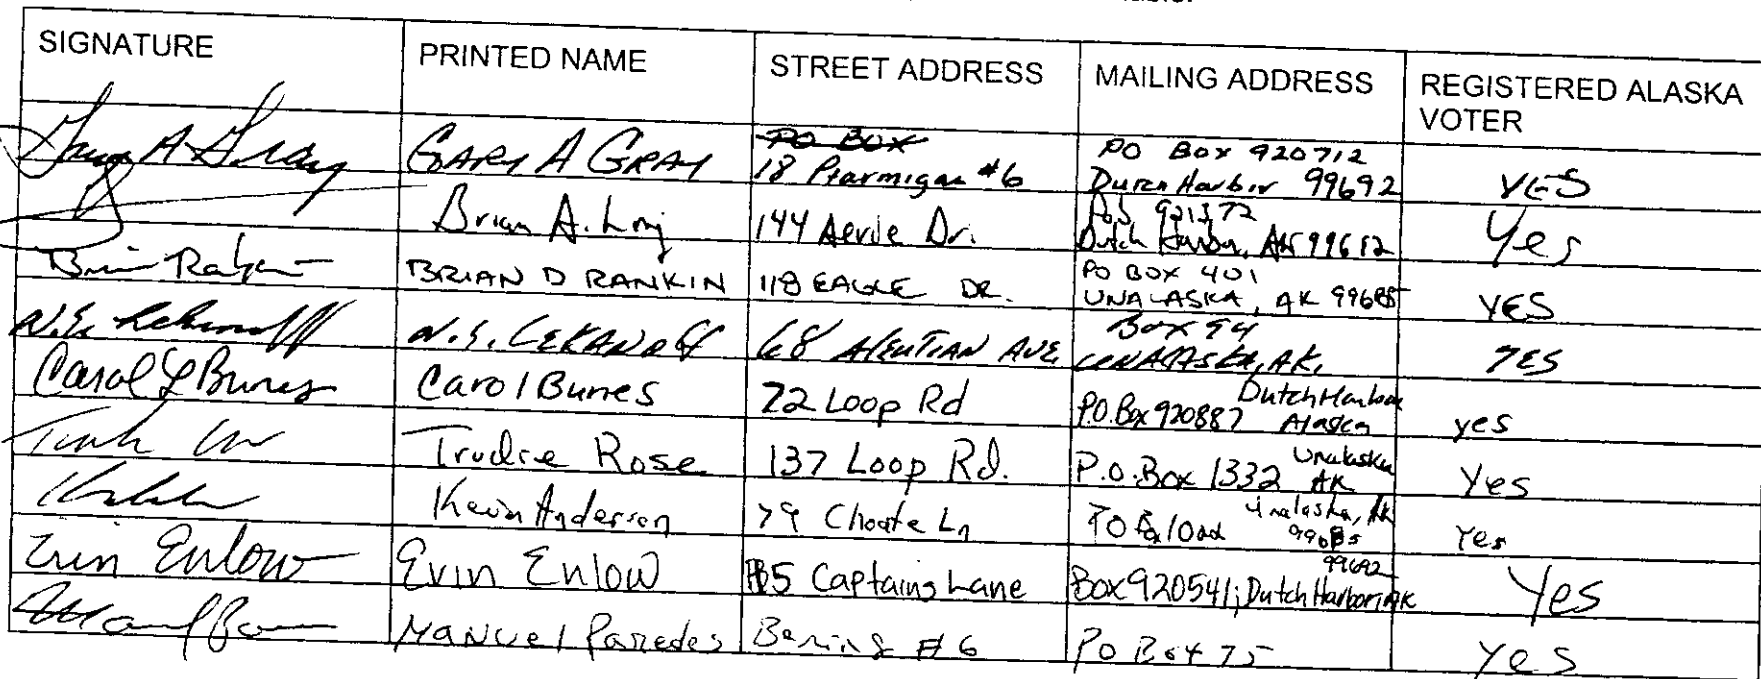 SIGNATURE PRINTED NAME STREET ADDRESS MAILING ADDRESS REGISTERED ALASKA VOTER
Gary A Gray GARY A GRAY PO BOX 18 Ptarmigan #6 PO BOX 920712 Dutch Harbor 99692 YES
Brian A. 144 Aerie Dr. 921372 Dutch Harbor, AK 99692 Yes
Brian BRIAN D RANKIN 118 EAGLE DR. PO BOX 401 UNALASKA, AK 99685 YES
N.S. Lekanoff N.S. LEKANOFF 68 ALEUTIAN AVE. Box 94 UNALASKA, AK. YES
Carol L Bunes Carol Bunes 72 Loop Rd P.O. Box 920887 Dutch Harbor Alaska yes
Trudie Rose 137 Loop Rd. P.O. Box 1332 Unalaska AK Yes
Kevin Anderson 79 Choate Ln PO Box Unalaska, AK 99685 Yes
Erin Enlow Erin Enlow 85 Captains Lane Box 920541; Dutch Harbor AK 99692 Yes
Manuel Paredes Bering #6 PO Box 75 yes